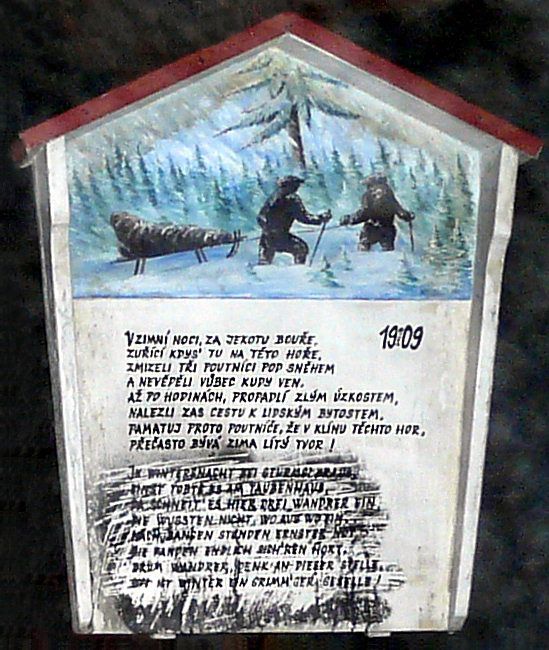 19:09
V ZIMNÍ NOCI, ZA JEKOTU BOUŘE,
ZUŘÍCÍ KDYS' TU NA TÉTO HOŘE,
ZMIZELI TŘI POUTNÍCI POD SNĚHEM
A NEVĚDĚLI VŮBEC KUDY VEN.
AŽ PO HODINÁCH, PROPADLÍ ZLÝM ÚZKOSTEM,
NALEZLI ZAS CESTU K LIDSKÝM BYTOSTEM,
PAMATUJ PROTO POUTNÍČE, ŽE V KLÍNU TĚCHTO HOR,
PŘEČASTO BÝVÁ ZIMA LÍTÝ TVOR !
IN WINTERSNACHT BEI STURMGEBRAUS,
EINST TOBTE ES AM TAUBENHAUS,
DA SCHNEIT' ES HIER DREI WANDRER EIN
SIE WUSSTEN NICHT, WO AUS WO EIN.
NACH BANGEN STUNDEN ERNSTER NOT,
SIE FANDEN ENDLICH SICH'REN HORT.
DRUM WANDRER, DENK AN DIESER STELLE,
OFT IST WINTER EIN GRIMM'GER GESELLE !